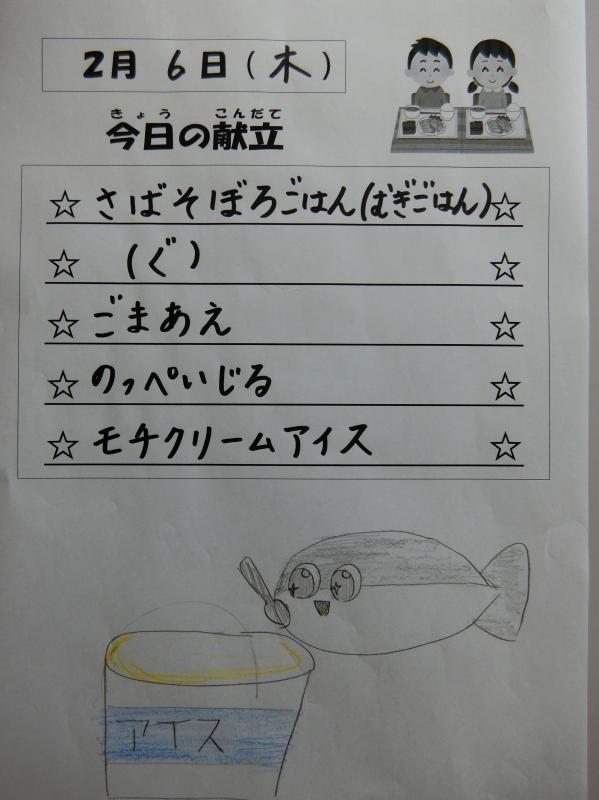 2月 6日(木)
きょう こんだて
今日の献立
☆ さばそぼろごはん(むぎごはん)☆
☆ (ぐ) ☆
☆ ごまあえ ☆
☆ のっぺいじる ☆
☆ モチクリームアイス ☆
アイス